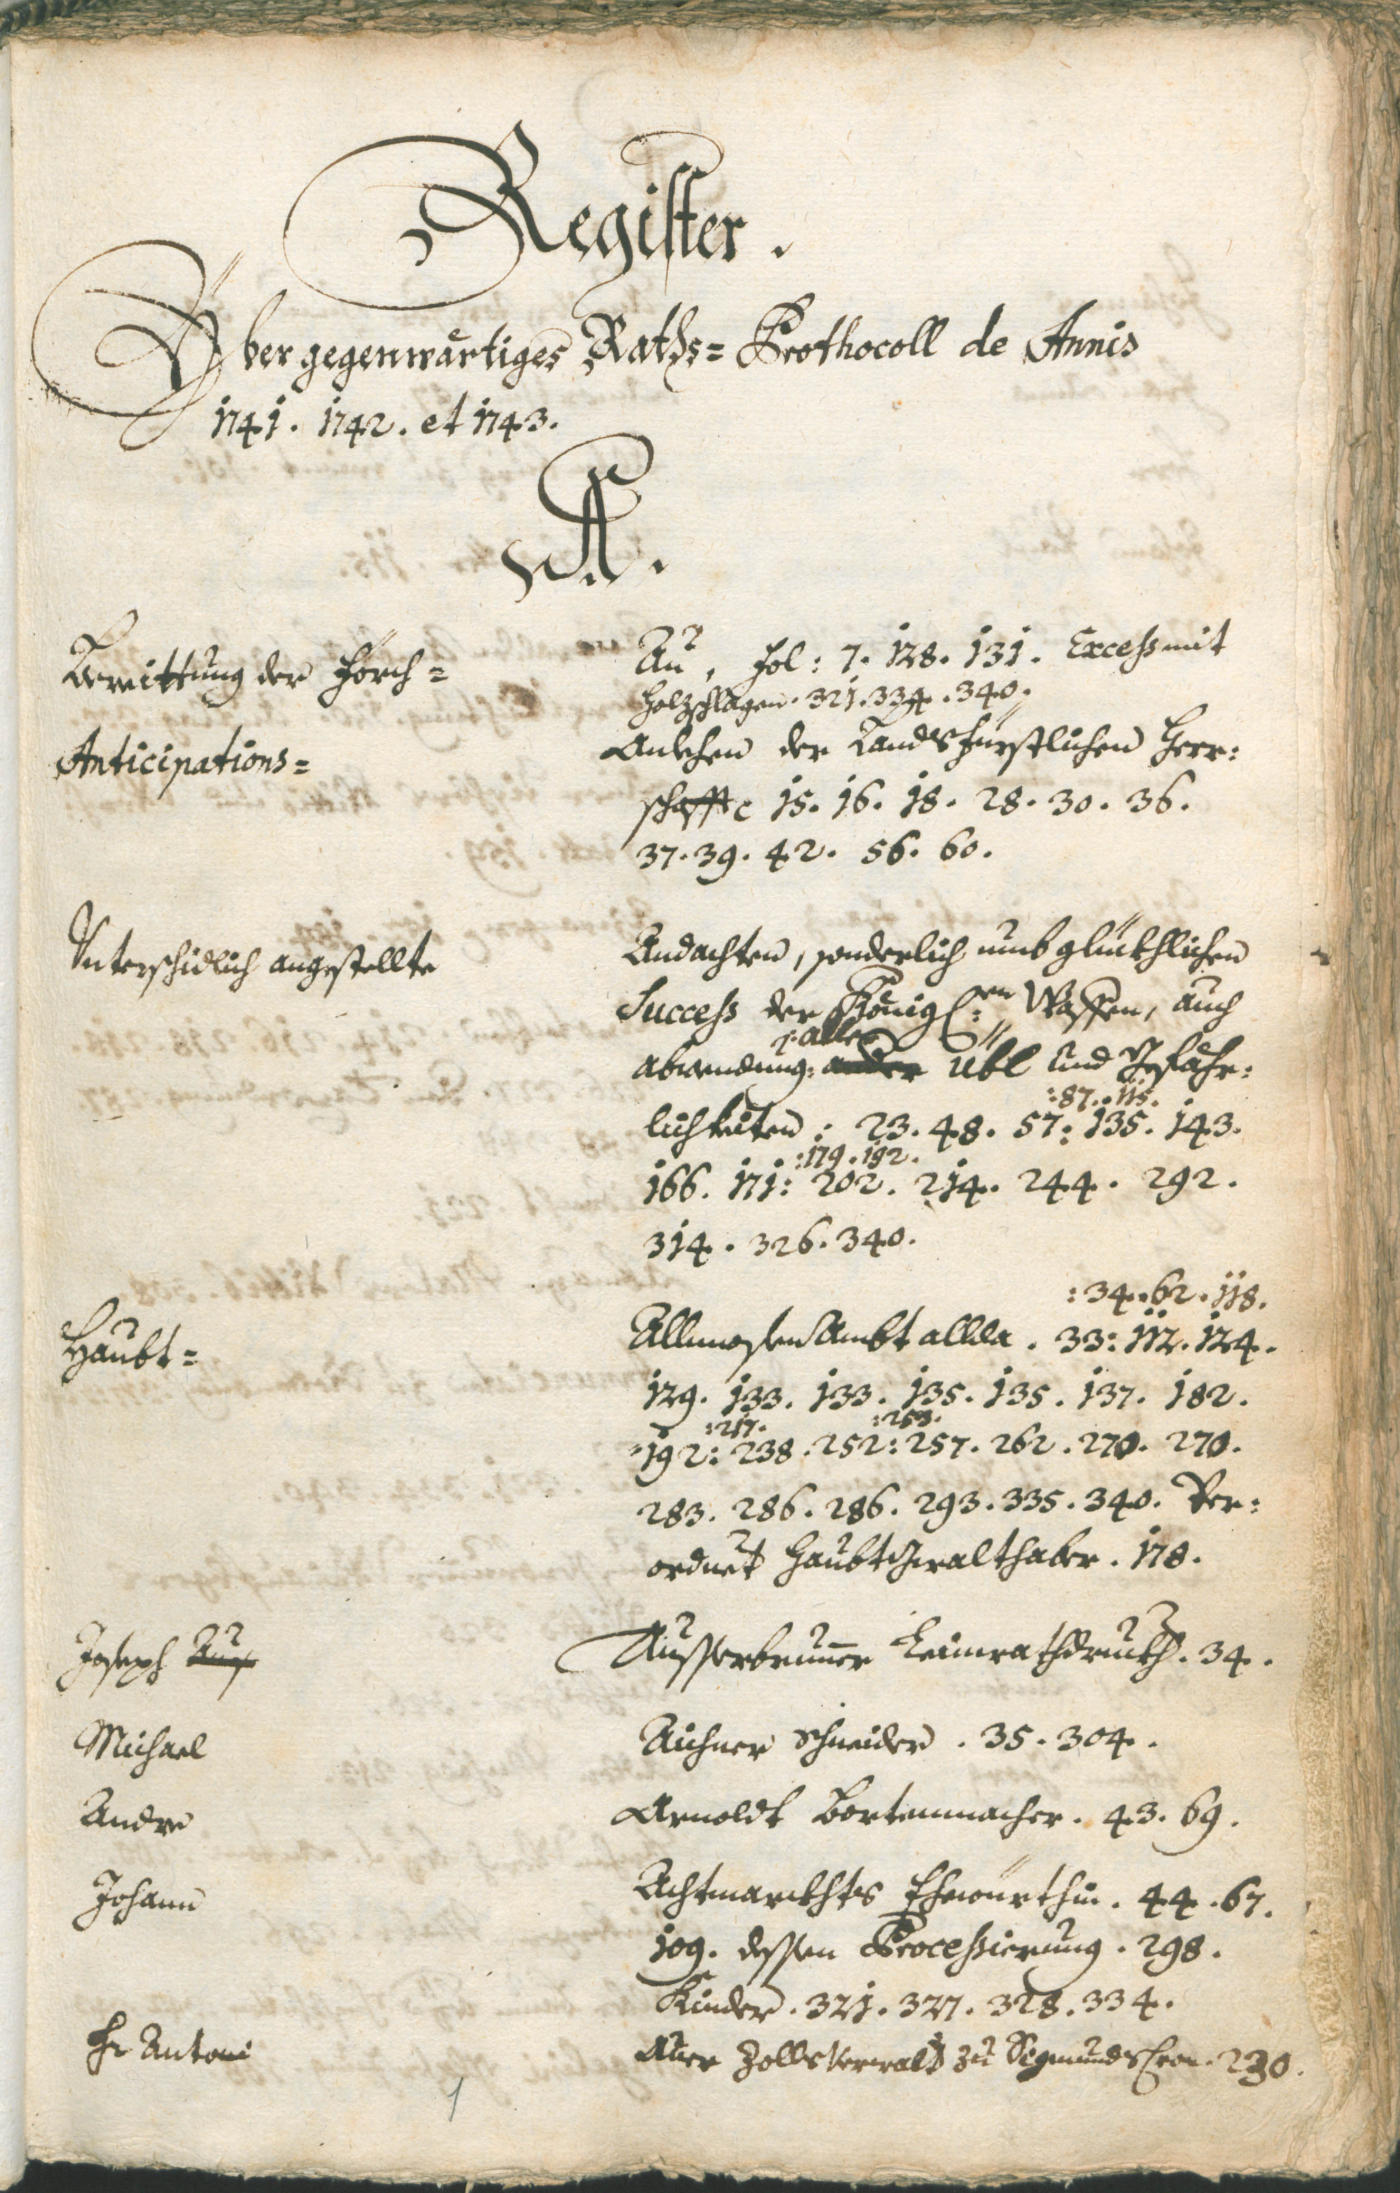 Register.
Über gegenwärtiges Raths= Prothocoll de Annis
1741. 1742. et 1743.
A.
Bereittung der Förch= Au, fol: 7. 128. 131. Excess mit
holzschlagen. 321. 334. 340.
Anticipations= Anlehen der Landsfürstlichen Herr:
schafft 15. 16. 18. 28. 30. 36.
37. 39. 42. 56. 60.
Unterschidlich angestellte Andachten, sonderlich umb glückhlichen
Success der Königl:en Waffen, auch
abwendung: aller übl und Gefahr:
:87. 115.
lichkeiten: 23. 48. 57: 135. 143.
:179. 192.
166. 171: 202. 214. 244. 292.
314. 326. 340.
:34. 62. 118.
Haubt= Allmosen Ambt allda. 33: 112. 124.
129. 133. 133. 135. 135. 137. 182.
:217. :253.
192: 238. 252: 257. 262. 270. 270.
283. 286. 286. 293. 335. 340. Ver:
ordnet Haubt Gwalthaber. 178.
Joseph Ausserbrunner 34.
Michael Aichner Schneider. 35. 304.
Andre Arnoldt Bortenmacher. 43. 69.
Johann Achtmarckhts Ehewürthin. 44. 67.
109. dessen Processierung. 298.
Kinder. 321. 327. 328. 334.
Hr Antoni Auer Zollsverwalt zu Sigmundscron. 230.
1